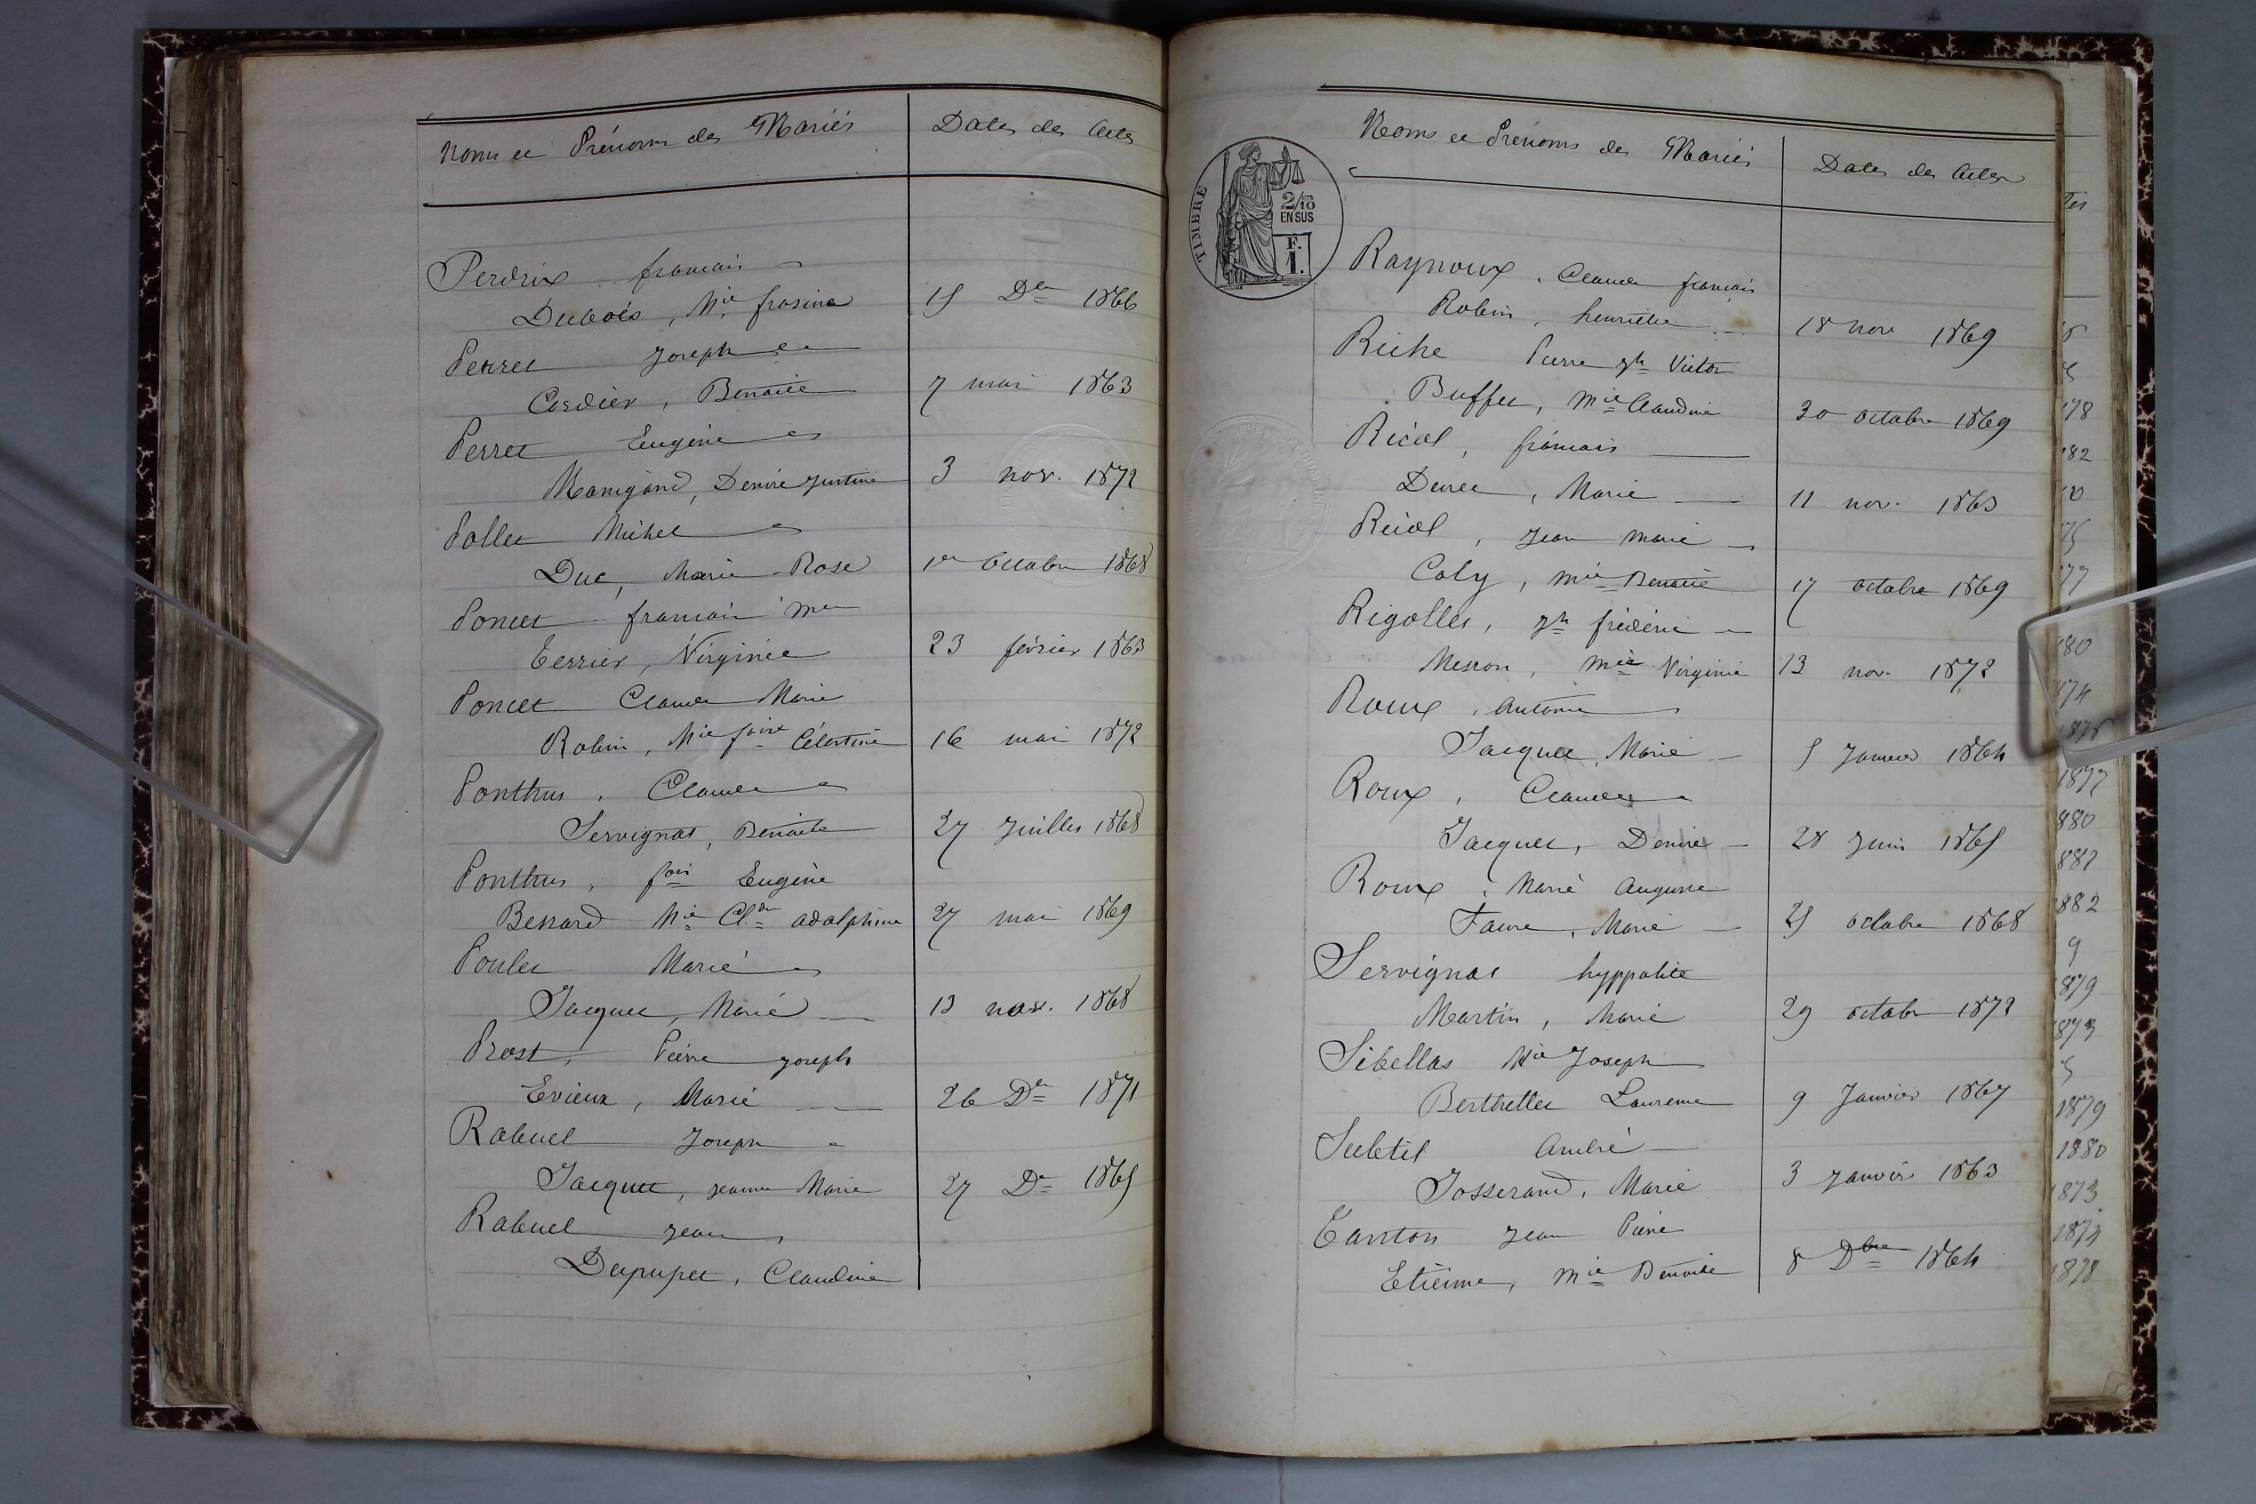 Noms et Prénoms des Mariés Dates des Actes
Perdrix françois
Dubois, Mie frosine 15 Dbre 1866
Perret Joseph
Cordier, Benoite 7 mai 1863
Perret Eugène
Manigand, Denise Justine 3 nov. 1872
Pollet Michel
Duc, Marie Rose 1er Octobre 1868
Poncet françois Mie
Terrier, Virginie 23 février 1863
Poncet Claude Marie
Robin, Mie foise Célestine 16 mai 1872
Ponthus, Claude
Servignat, Benoite 27 Juillet 1868
Ponthus, fois Eugène
Bernard Mie Cl.de adolphine 27 mai 1869
Poulet Marie
Jacquet, Marie 13 nov. 1868
Prost, Pierre Joseph
Evieux, Marie 26 Dre 1871
Rabuel Joseph
Jacquet, Jeanne Marie 27 Dre 1865
Rabuel Jean
Dupupet, Claudine
TIMBRE
2/10 EN SUS
F. 1.
Noms et Prénoms des Mariés Dates des Actes
Raynoux, Claude françois
Robin, henriette 18 nov 1869
Riche Pierre Jh Victor
Buffet, Mie Claudine 30 octobre 1869
Ricol, françois
Marie 11 nov. 1863
Ricol, Jean Marie
Coly, Mie Benoite 17 octobre 1869
Rigollet, Jh fréderic
Mie Virginie 13 nov. 1872
Roux, Antoine
Jacquet, Marie 5 Janvier 1864
Roux, Claude
Jacquet, Denise 28 Juin 1865
Roux, Marie Auguste
Favre, Marie 25 octobre 1868
Servignat hyppolite
Martin, Marie 29 octobre 1872
Sibellas Mie Joseph
Berthellet Laurence 9 Janvier 1867
Subtil André
Josserand, Marie 3 Janvier 1863
Tanton Jean Pierre
Etienne, Mie Benoite 8 Dbre 1864